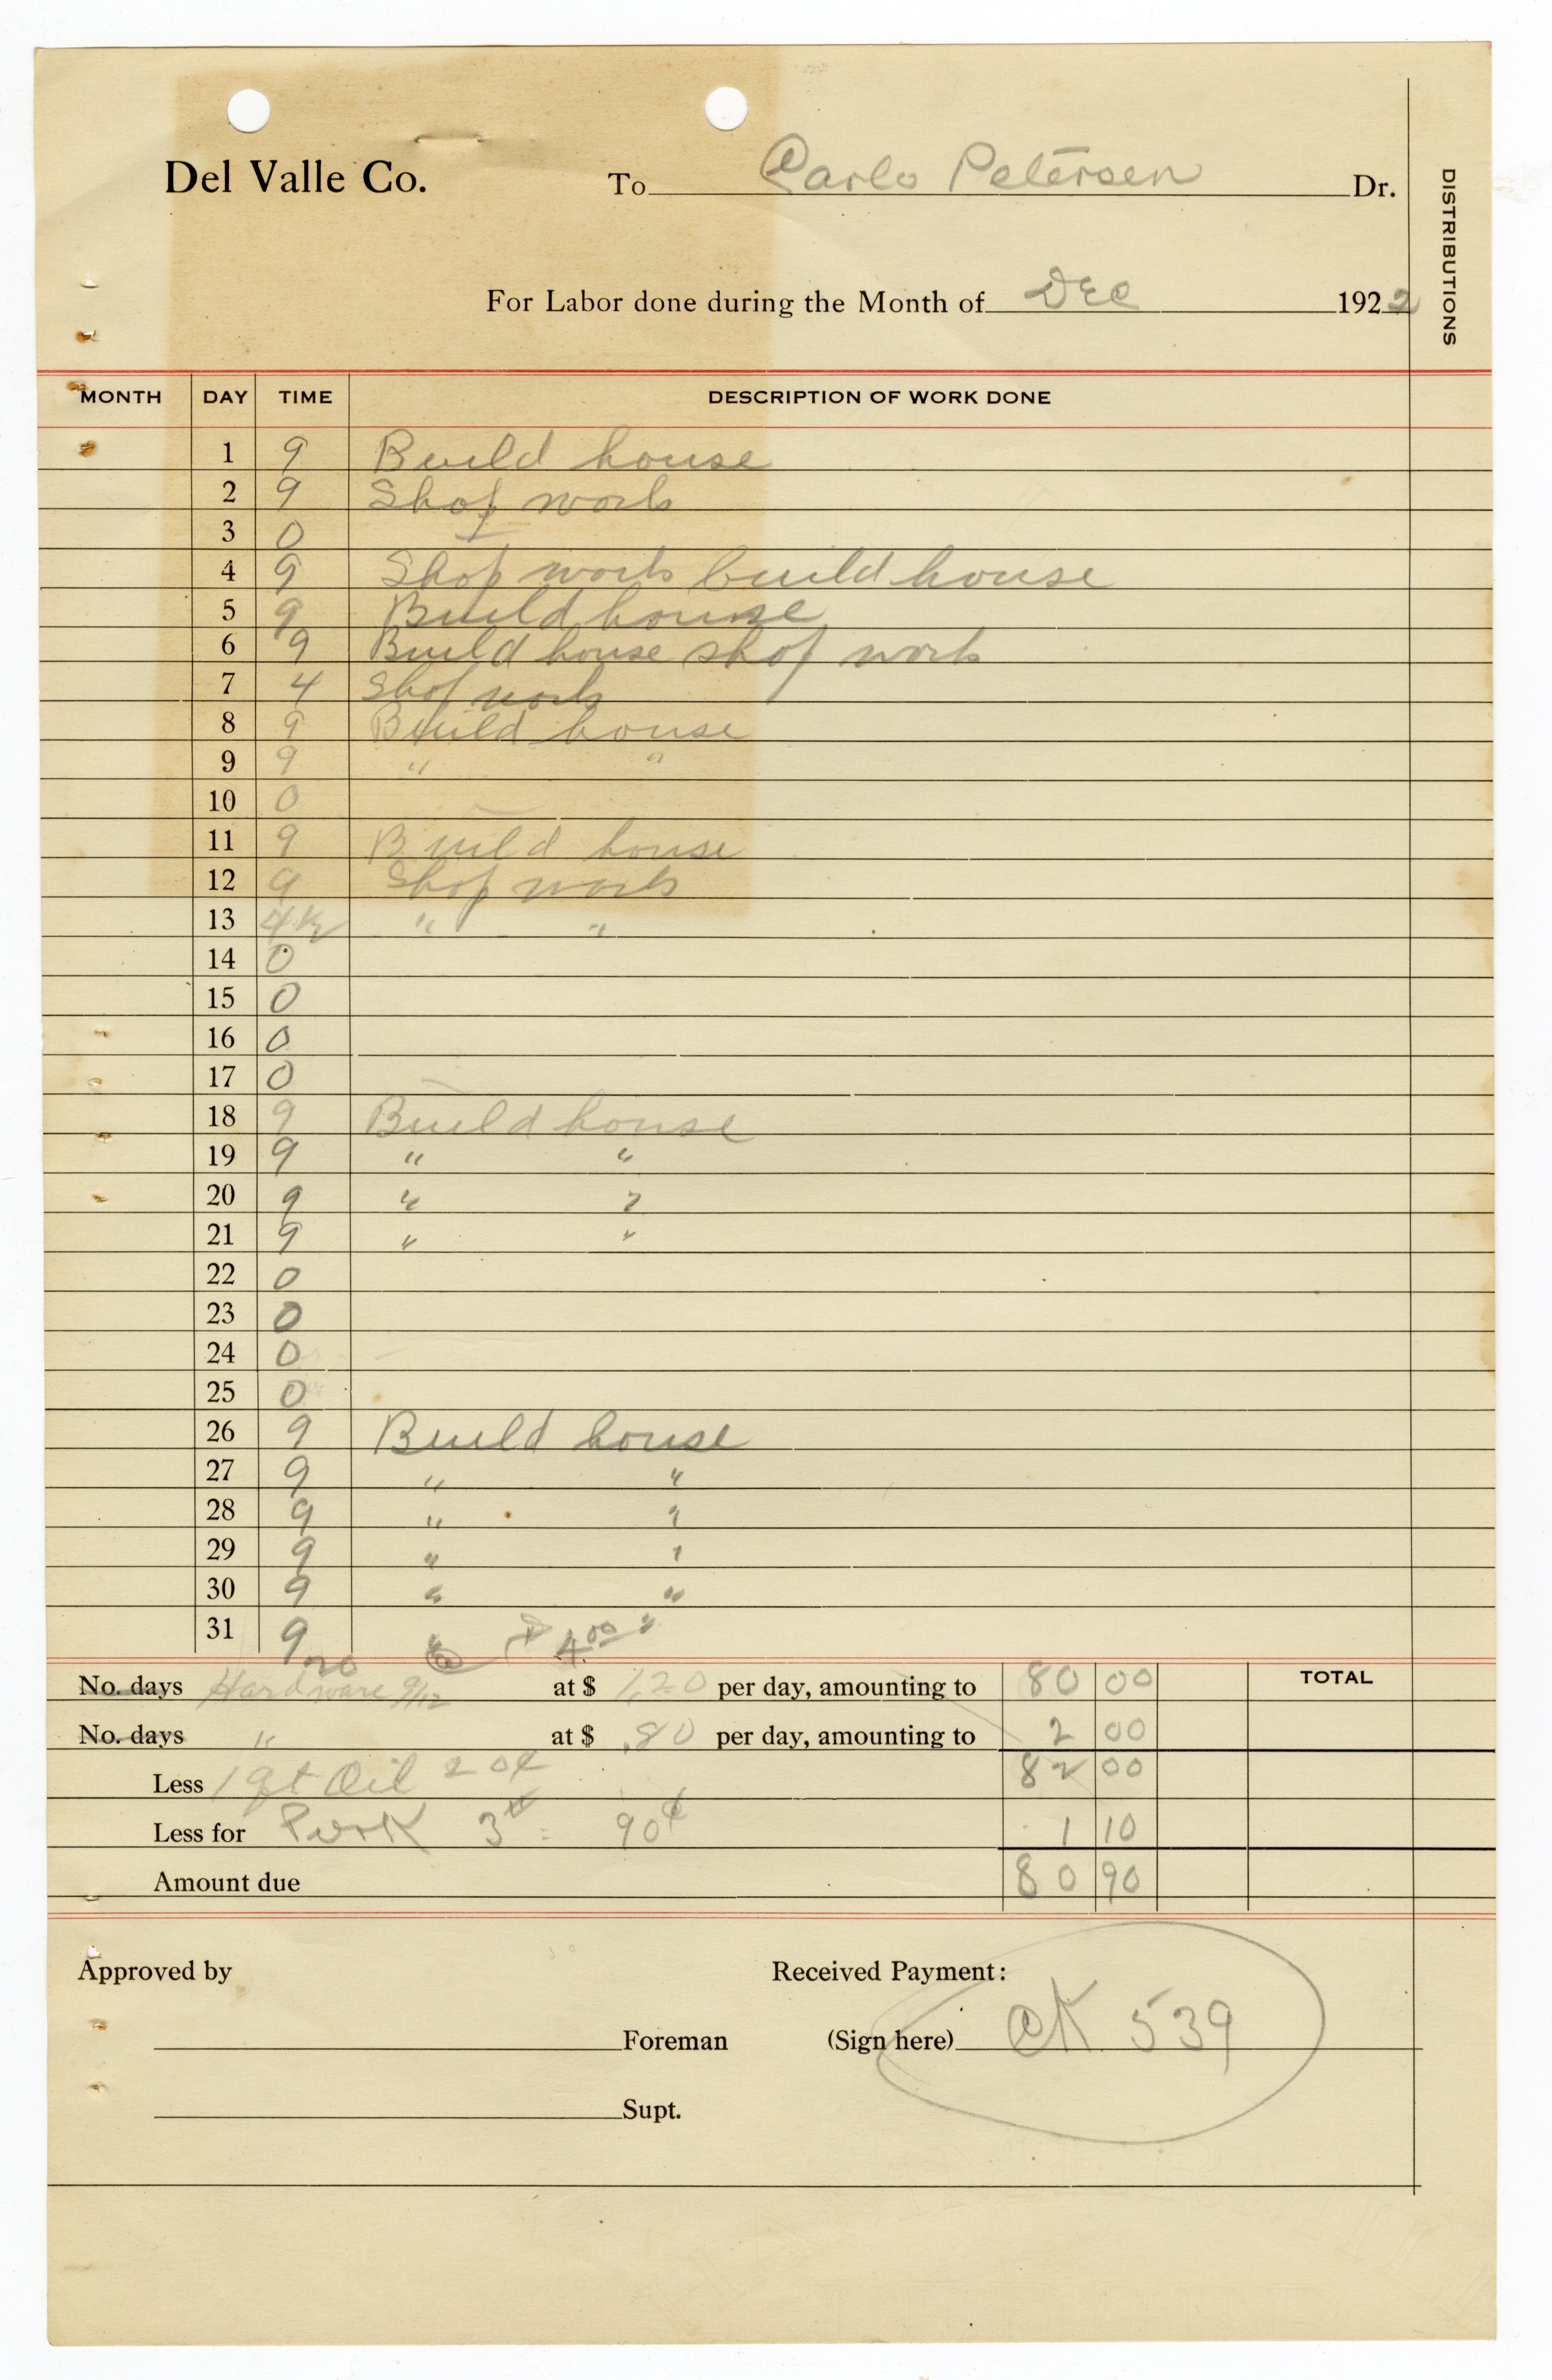 Del Valle Co. To Carlo Petersen Dr.
DISTRIBUTIONS
For Labor done during the Month of Dec 1922
MONTH DAY TIME DESCRIPTION OF WORK DONE
1 9 Build house
2 9 Shop work
3 0
4 9 Shop work build house
5 9 Build house
6 9 Build house shop work
7 4 Shop work
8 9 Build house
9 9 " "
10 0
11 9 Build house
12 9 Shop work
13 4 1/2 " "
14 0
15 0
16 0
17 0
18 9 Build house
19 9 " "
20 9 " "
21 9 " "
22 0
23 0
24 0
25 0
26 9 Build house
27 9 " "
28 9 " "
29 9 " "
30 9 " "
31 9 " "
20 @ 4.00
No. days Hardware 9/12 at $ 1.20 per day, amounting to 80 00 TOTAL
No. days " at $ .80 per day, amounting to 2 00
Less 1 qt Oil 20¢ 82 00
Less for Pork 3# 90¢ 1 10
Amount due 80 90
Approved by Received Payment:
Foreman (Sign here) CK 539
Supt.